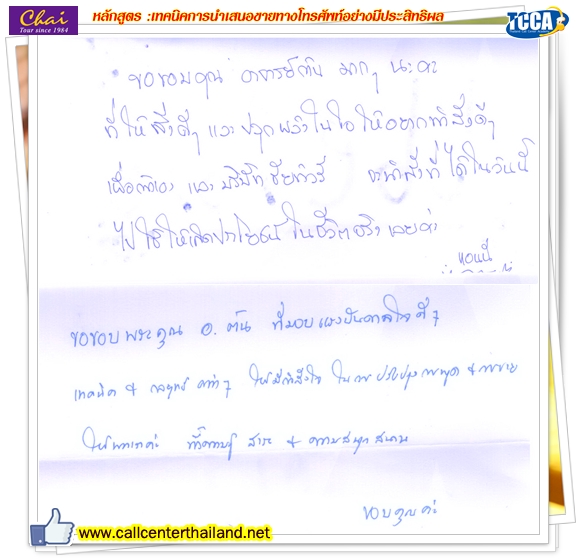 Chai
Tour since 1984
หลักสูตร :เทคนิคการนำเสนอขายทางโทรศัพท์อย่างมีประสิทธิผล
TCCA
ขอขอบคุณ อาจารย์ต้น มากๆ นะคะ
ที่ให้สิ่งดีๆ และปลุกพลังในใจให้อยากทำสิ่งดีๆ
เพื่อตัวเอง และ บริษัท ชัยทัวร์ จะนำสิ่งที่ได้ในวันนี้
ไปใช้ให้เกิดประโยชน์ในชีวิตจริงเลยค่ะ
ขอขอบพระคุณ อ. ต้น ที่มอบแรงบันดาลใจดีๆ
เทคนิค & กลยุทธ์ ต่างๆ ให้มีกำลังใจ ในการปรับปรุงการพูด & การขาย
ทั้งความรู้ สาระ & ความสนุกสนาน
ขอบคุณค่ะ
www.callcenterthailand.net